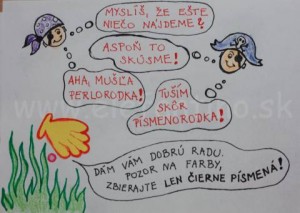 MYSLÍŠ, ŽE EŠTE
NIEČO NÁJDEME?
ASPOŇ TO
SKÚSME!
AHA, MUŠĽA
PERLORODKA!
TUŠÍM
SKÔR
PÍSMENORODKA!
DÁM VÁM DOBRÚ RADU.
POZOR NA FARBY,
ZBIERAJTE LEN ČIERNE PÍSMENÁ!